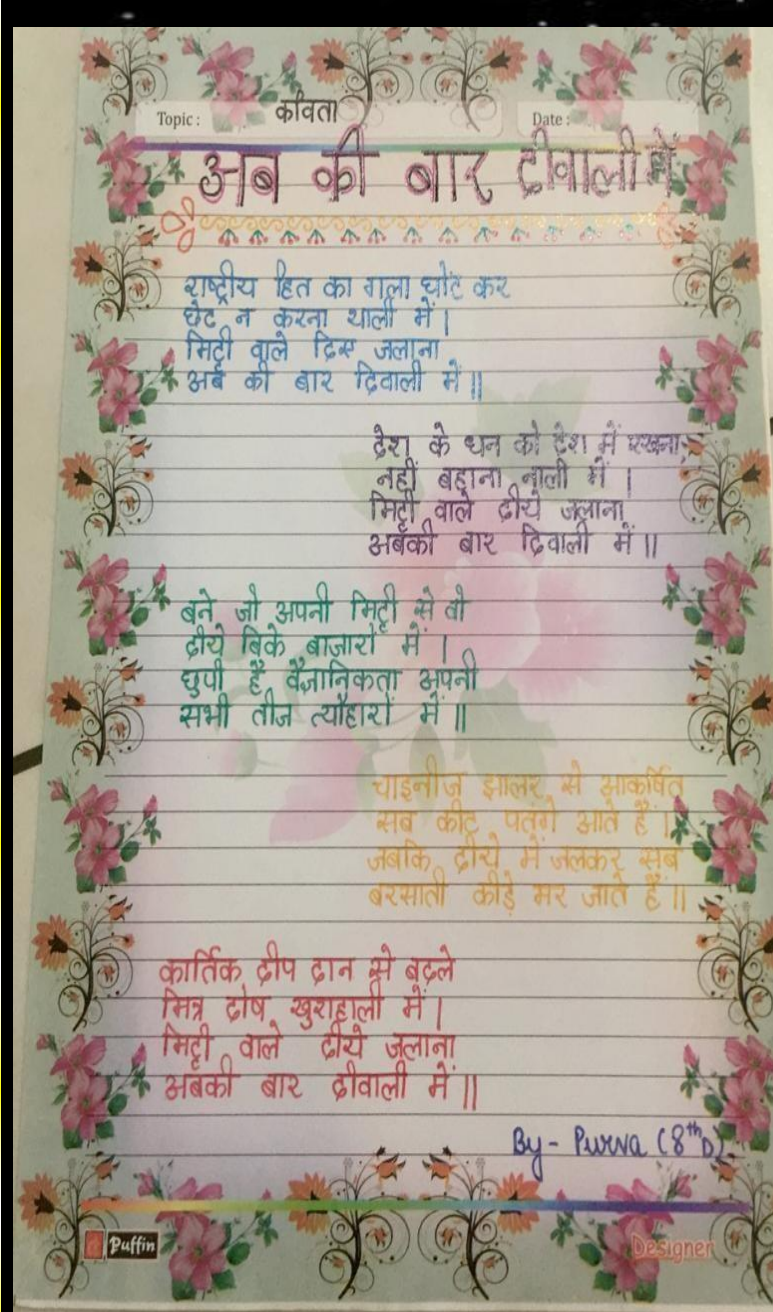 Topic : कविता Date :
अब की बार दीवाली में
राष्ट्रीय हित का गला घोंट कर
छेद न करना थाली में |
मिट्टी वाले दिए जलाना
अब की बार दिवाली में ||
देश के धन को देश में रखना,
नहीं बहाना नाली में |
मिट्टी वाले दीये जलाना
अबकी बार दिवाली में ||
बने जो अपनी मिट्टी से वो
दीये बिके बाजारों में |
छुपी है वैज्ञानिकता अपनी
सभी तीज त्यौहारों में ||
चाइनीज झालर से आकर्षित
सब कीट पतंगे आते हैं |
जबकि दीये में जलकर सब
बरसाती कीड़े मर जाते हैं ||
कार्तिक दीप दान से बदले
मित्र दोष खुशहाली में |
मिट्टी वाले दीये जलाना
अबकी बार दीवाली में ||
By - Purva (8th D)
Puffin Designer